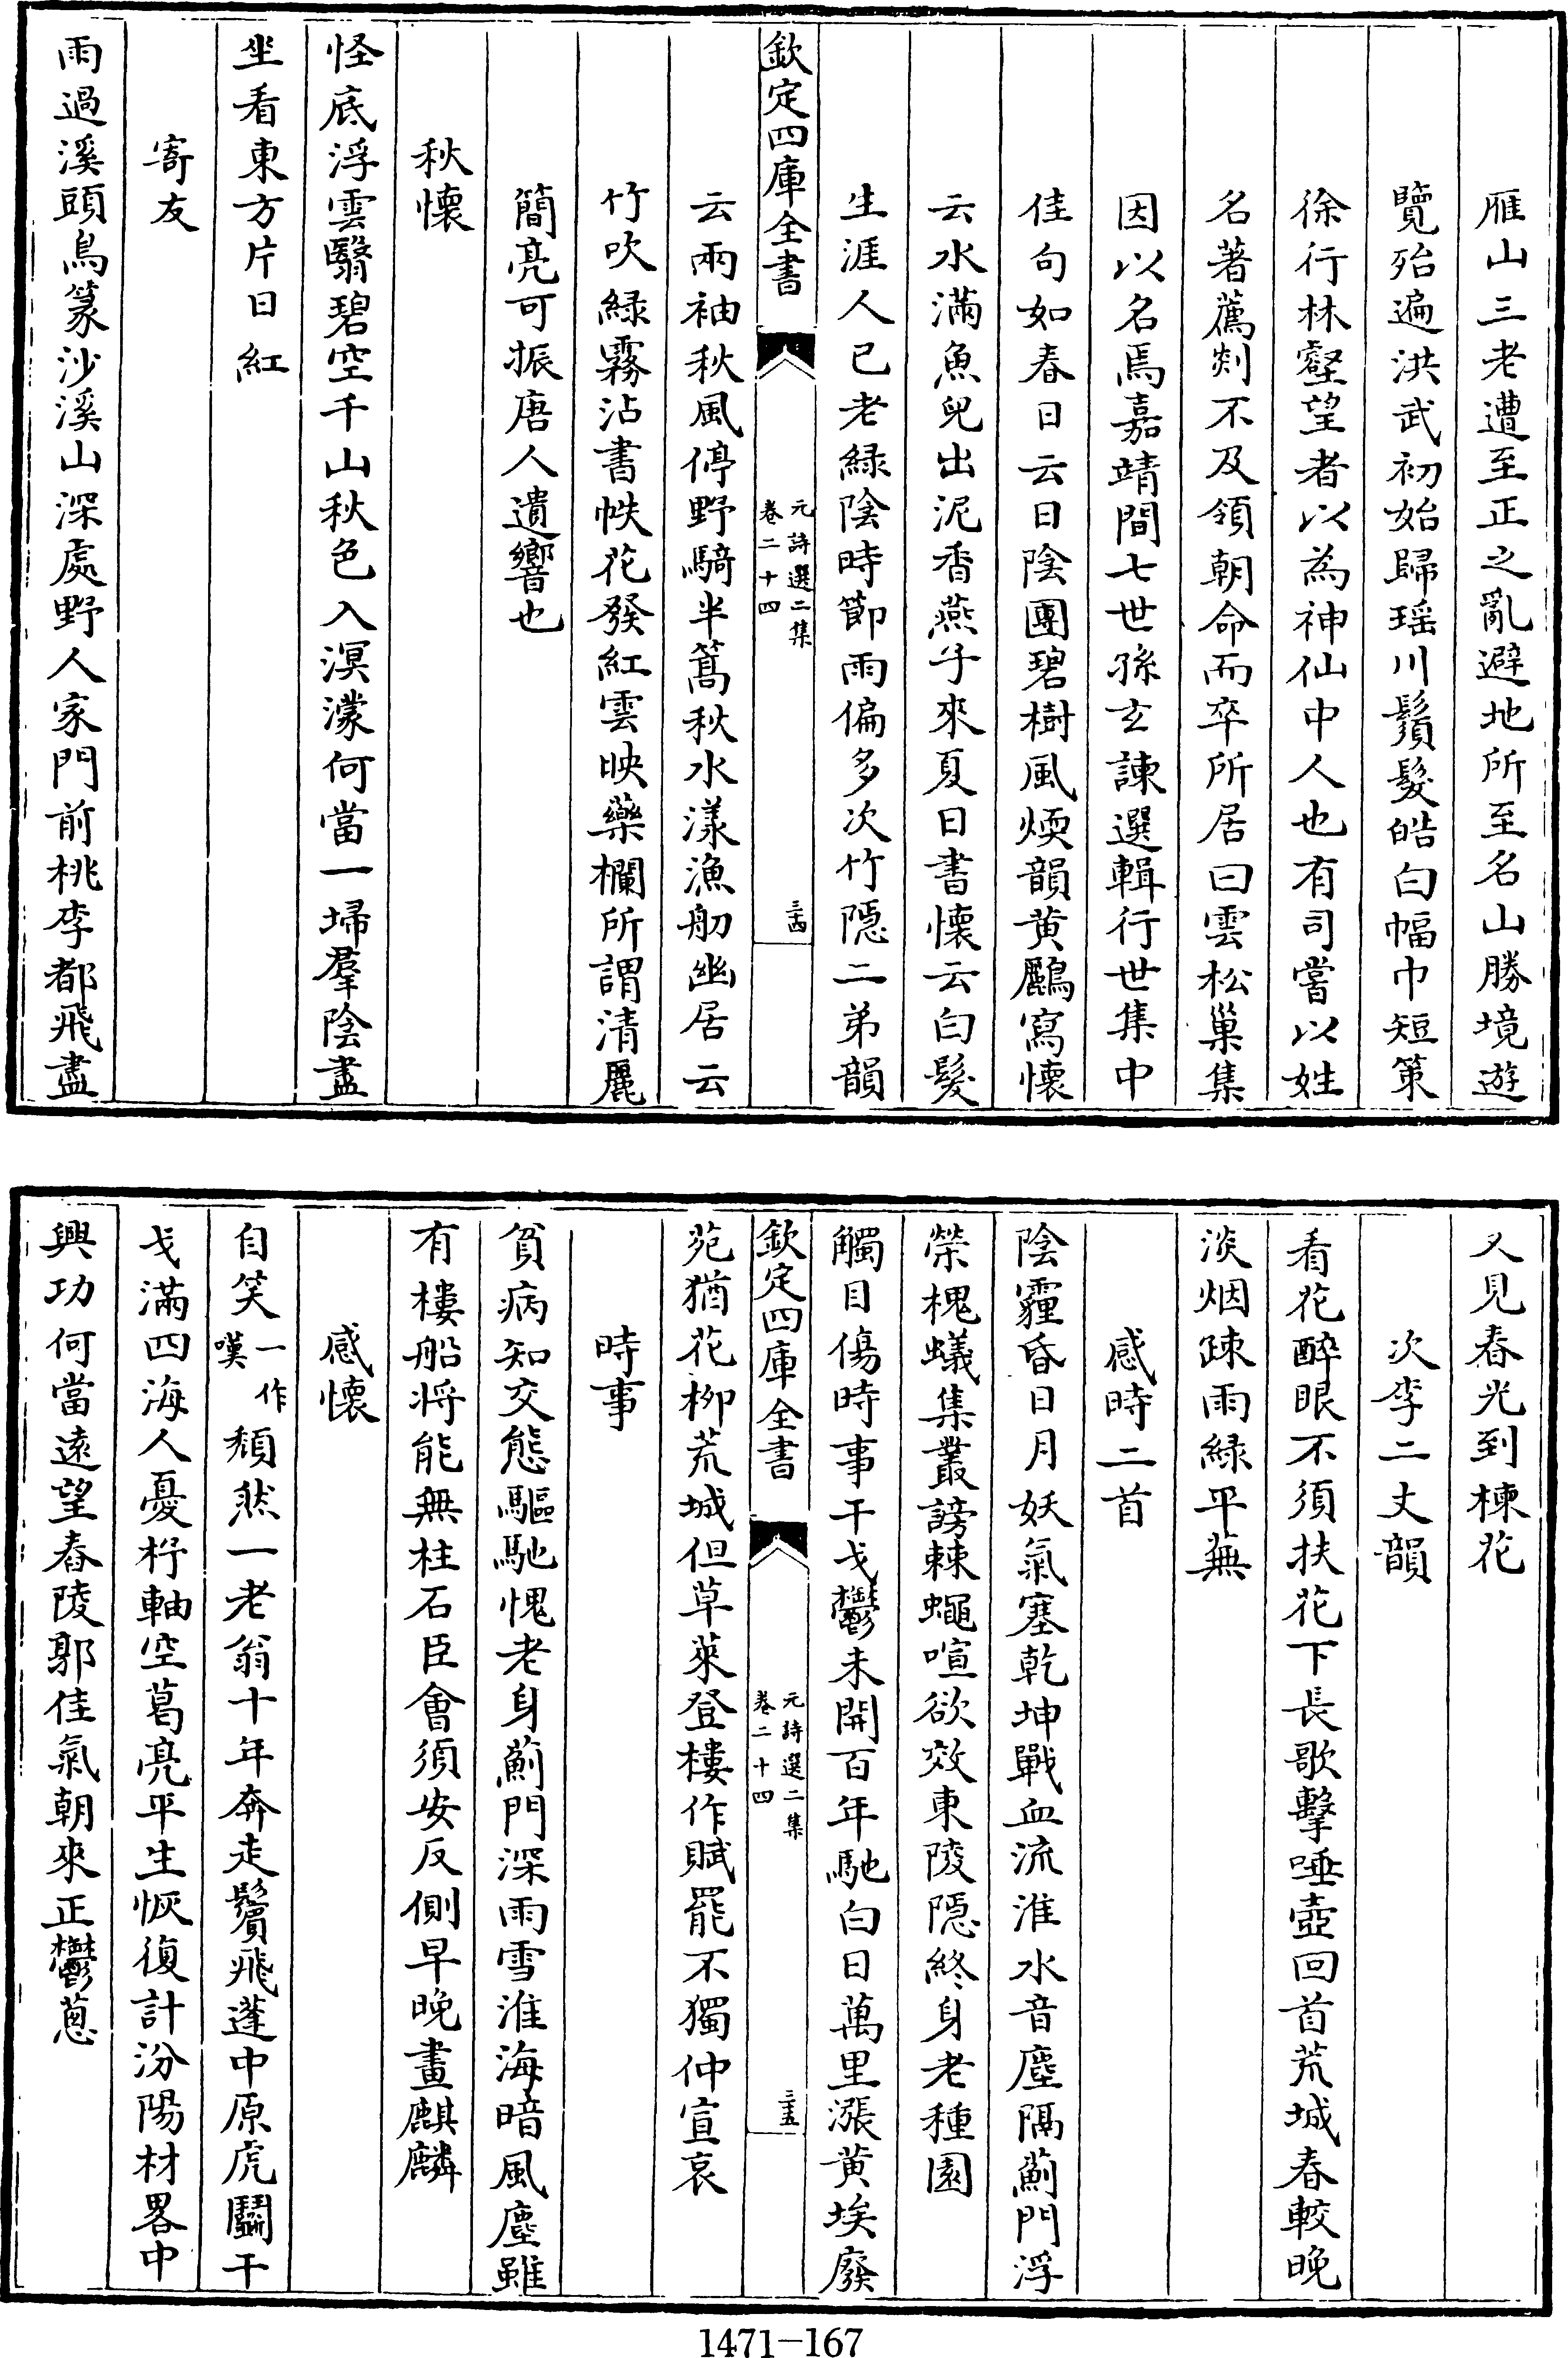 雁山三老遭至正之亂避地所至名山勝境遊
覽殆遍洪武初始歸瑶川鬚髮皓白幅巾短策
徐行林壑望者以為神仙中人也有司嘗以姓
名著薦剡不及領朝命而卒所居曰雲松巢集
因以名焉嘉靖間七世孫玄諫選輯行世集中
佳句如春日云日陰團碧樹風煗韻黄鸝寫懷
云水滿魚兒出泥香燕子來夏日書懷云白髮
生涯人已老緑陰時節雨偏多次竹隱二弟韻
欽定四庫全書
元詩選二集
卷二十四
三四
云兩袖秋風停野騎半篙秋水漾漁舠幽居云
竹吹緑霧沾書帙花發紅雲映藥欄所謂清麗
簡亮可振唐人遺響也
秋懷
怪底浮雲翳碧空千山秋色入溟濛何當一埽羣陰盡
坐看東方片日紅
寄友
雨過溪頭鳥篆沙溪山深處野人家門前桃李都飛盡
又見春光到楝花
次李二丈韻
看花醉眼不須扶花下長歌擊唾壺回首荒城春較晚
淡烟疎雨緑平蕪
感時二首
陰霾昏日月妖氣塞乾坤戰血流淮水音塵隔薊門浮
榮槐蟻集叢謗棘蠅喧欲效東陵隱終身老種園
觸目傷時事干戈鬱未開百年馳白日萬里漲黄埃廢
欽定四庫全書
元詩選二集
卷二十四
三五
苑猶花柳荒城但草萊登樓作賦罷不獨仲宣哀
時事
貧病知交態驅馳愧老身薊門深雨雪淮海暗風塵雖
有樓船将能無柱石臣會須安反側早晚畫麒麟
感懷
自笑一作嘆頹然一老翁十年奔走鬢飛蓬中原虎鬭干
戈滿四海人憂杼軸空葛亮平生恢復計汾陽材畧中
興功何當遠望舂陵郭佳氣朝來正鬱蔥
1471-167